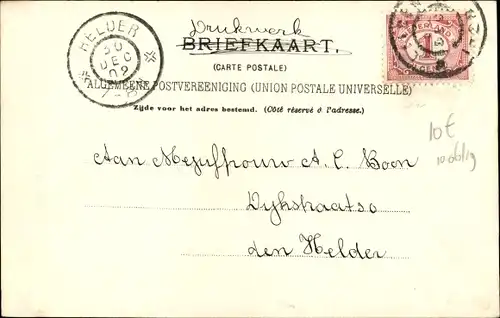 Drukwerk
BRIEFKAART.
(CARTE POSTALE)
ALGEMEENE POSTVEREENIGING (UNION POSTALE UNIVERSELLE)
Zijde voor het adres bestemd. (Côté réservé à l'adresse.)
HELDER
30
DEC
02
NEDERLAND
1
Aan Mejuffrouw A. C. Boon
Dijkstraat
den Helder
10€